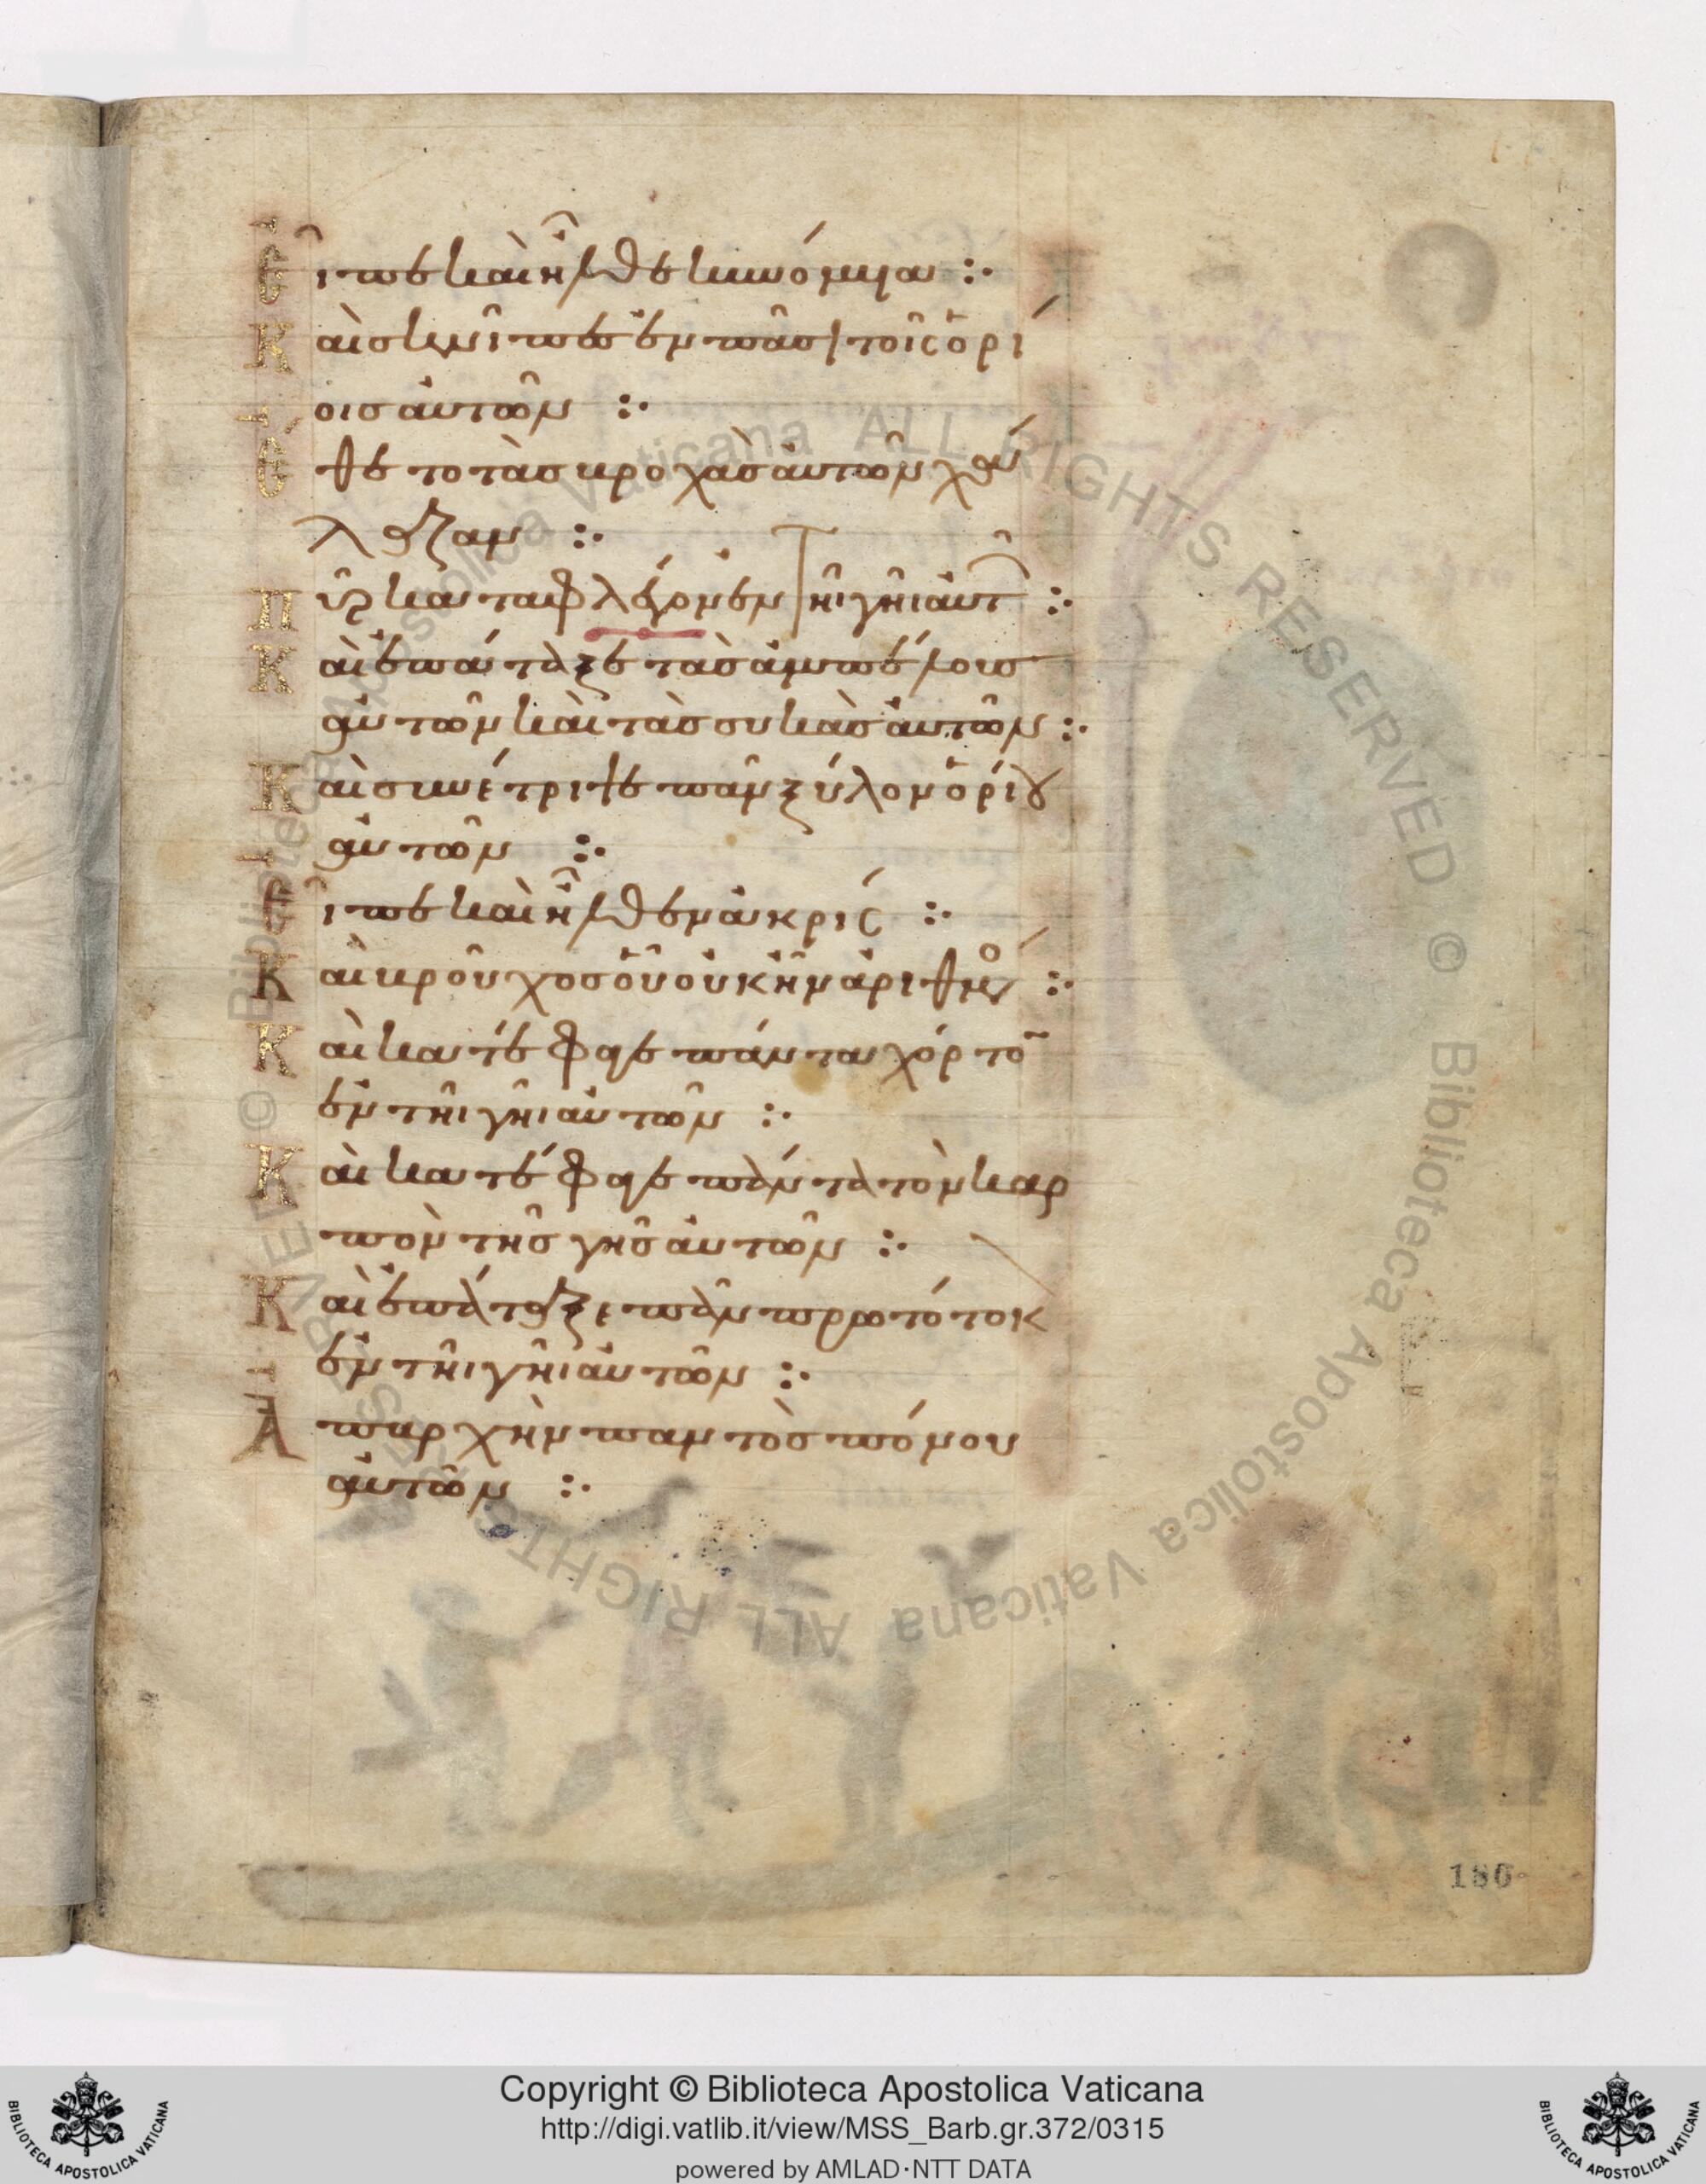 Εἶπε καὶ ἦλθε κυνόμυια :·
Καὶ σκνῖπες ἐν πᾶσι τοῖς ὁρί
οις αὐτῶν :·
Ἔθετο τὰς βροχὰς αὐτῶν χάλαζαν :·
Πῦρ καταφλέγον ἐν τῆι γῆι αὐτ :·
Καὶ ἐπάταξε τὰς ἀμπέλους
αὐτῶν καὶ τὰς συκὰς αὐτῶν :·
Καὶ συνέτριψε πᾶν ξύλον ὁρίου
αὐτῶν :·
Εἶπε καὶ ἦλθεν ἀκρίς :·
Καὶ βροῦχος οὗ οὐκ ἦν ἀριθμός :·
Καὶ κατέφαγε πάντα χόρτο
ἐν τῆι γῆι αὐτῶν :·
Καὶ κατέφαγε πάντα τὸν καρ
πὸν τῆς γῆς αὐτῶν :·
Καὶ ἐπάταξε πᾶν πρωτότοκ
ἐν τῆι γῆι αὐτῶν :·
Ἀπαρχὴν παντὸς πόνου
αὐτῶν :·
186
© Biblioteca Apostolica Vaticana ALL RIGHTS RESERVED © Biblioteca Apostolica Vaticana ALL RIGHTS RESERVED
BIBLIOTECA APOSTOLICA VATICANA
Copyright © Biblioteca Apostolica Vaticana
http://digi.vatlib.it/view/MSS_Barb.gr.372/0315
powered by AMLAD·NTT DATA
BIBLIOTECA APOSTOLICA VATICANA